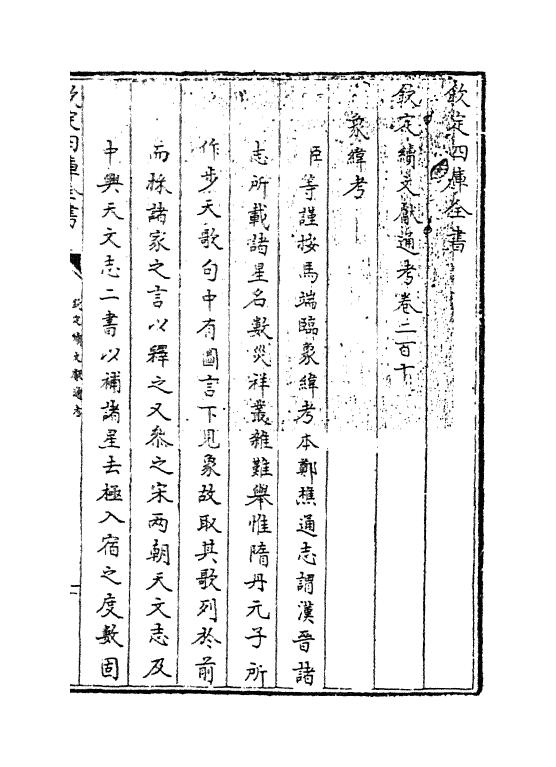 欽定四庫全書
欽定續文獻通考卷二百十
象緯考
臣等謹按馬端臨象緯考本鄭樵通志謂漢晉諸
志所載諸星名數災祥叢雜難舉惟隋丹元子所
作步天歌句中有圖言下見象故取其歌列於前
而採諸家之言以釋之又叅之宋兩朝天文志及
中興天文志二書以補諸星去極入宿之度數固
欽定四庫全書
欽定續文獻通考